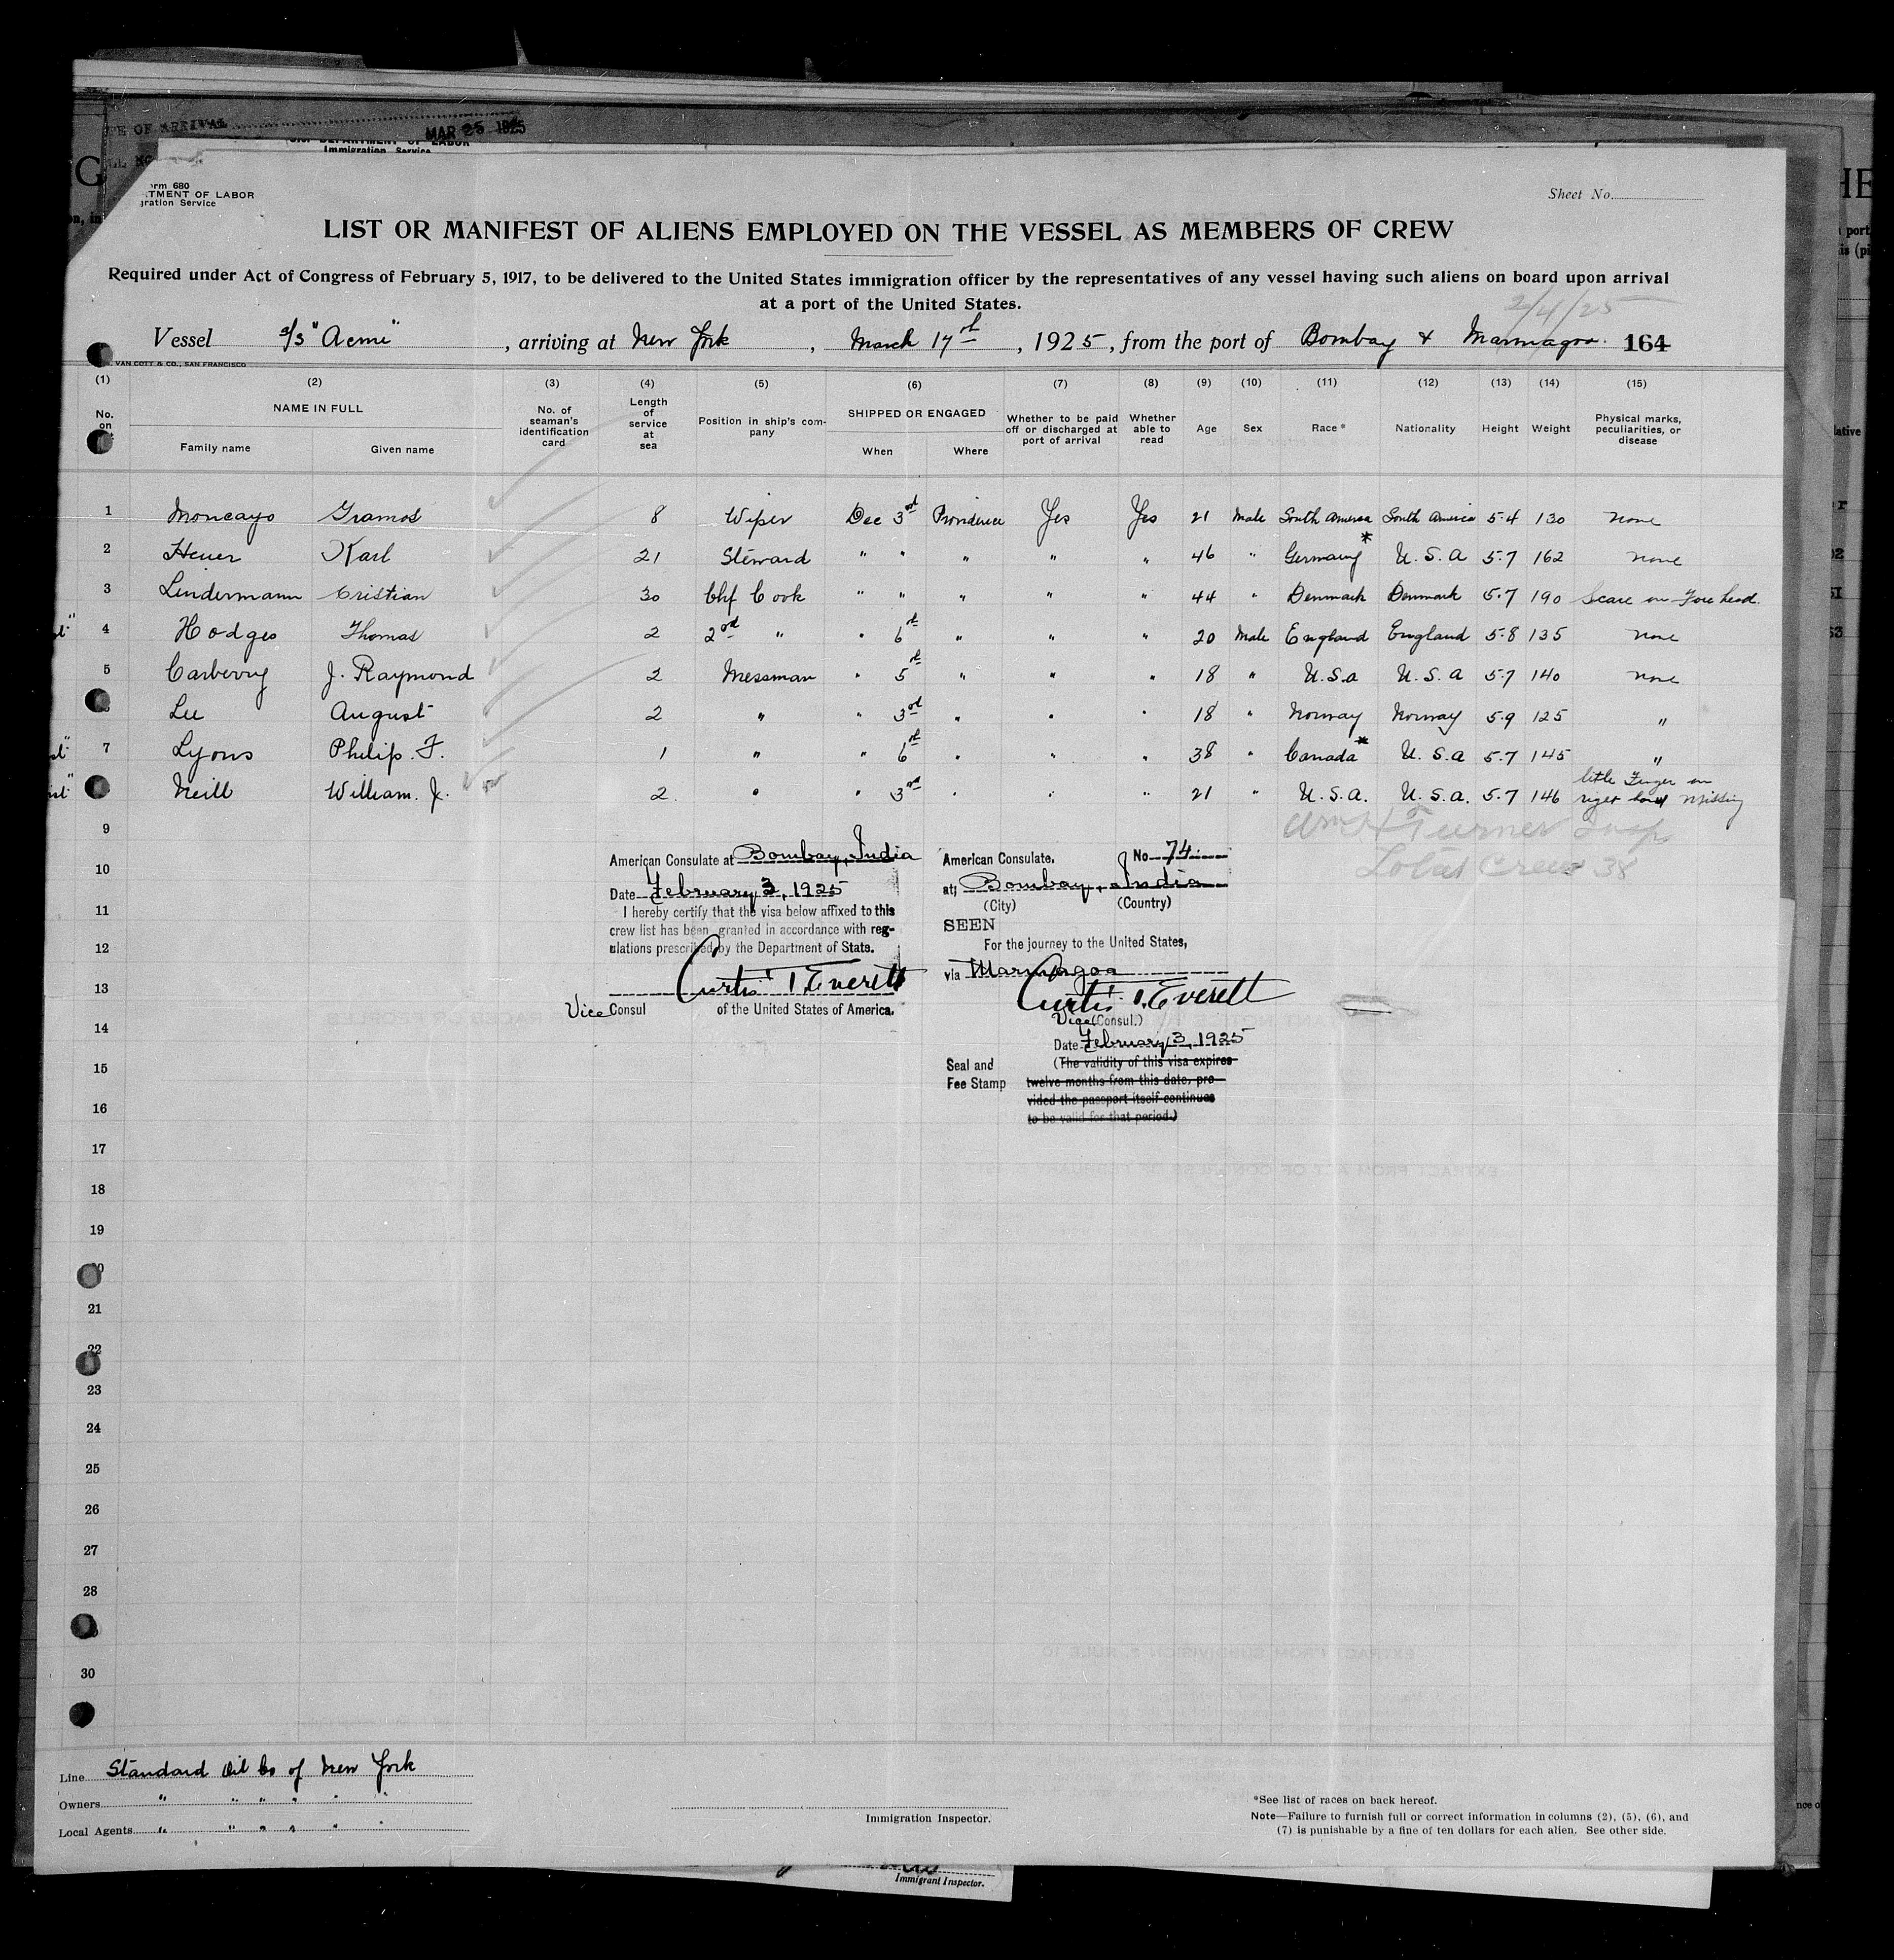 OF ARRIVAL MAR 25 1925
Immigration Service
rm 680
TMENT OF LABOR
gration Service
Sheet No.
LIST OR MANIFEST OF ALIENS EMPLOYED ON THE VESSEL AS MEMBERS OF CREW
Required under Act of Congress of February 5, 1917, to be delivered to the United States immigration officer by the representatives of any vessel having such aliens on board upon arrival
at a port of the United States.
2/4/25
Vessel S/S "Acme", arriving at New York, March 17th, 1925, from the port of Bombay & Marmagoa. 164
VAN COTT & CO., SAN FRANCISCO
(1) (2) (3) (4) (5) (6) (7) (8) (9) (10) (11) (12) (13) (14) (15)
No. on NAME IN FULL Family name Given name
No. of seaman's identification card
Length of service at sea
Position in ship's company
SHIPPED OR ENGAGED When Where
Whether to be paid off or discharged at port of arrival
Whether able to read
Age Sex Race* Nationality Height Weight
Physical marks, peculiarities, or disease
1 Moncayo Gramos 8 Wiper Dec 3rd Providence Yes Yes 21 Male South America South America 5-4 130 None
2 Heuer Karl 21 Steward " " " " " 46 " Germany* U.S.A 5-7 162 none
3 Lindermann Cristian 30 Chf Cook " " " " " 44 " Denmark Denmark 5-7 190 Scare on Fore head.
4 Hodges Thomas 2 2nd " " 6th " " " 20 Male England England 5-8 135 None
5 Carberry J. Raymond 2 Messman " 5th " " " 18 " U.S.a U.S.a 5-7 140 none
Lee August 2 " " 3rd " " " 18 " Norway Norway 5-9 125 "
7 Lyons Philip. F. 1 " " 6th " " " 38 " Canada* U.S.a 5-7 145 "
Neill William. J. 2. " " 3rd " " " 21 " U.S.A. U.S.A. 5-7 146 little Finger on
riget hand Missing
9
Wm H Turner Insp
Total Crew 38
10
11
12
13
14
15
16
American Consulate at Bombay, India
Date February 3, 1925
I hereby certify that the visa below affixed to this
crew list has been granted in accordance with reg-
ulations prescribed by the Department of State.
Curtis T. Everett
Vice Consul of the United States of America.
American Consulate. No 74
at Bombay, India
(City) (Country)
SEEN
For the journey to the United States,
via Marmagoa
Curtis T. Everett
Vice (Consul.)
Date February 3, 1925
Seal and
Fee Stamp
(The validity of this visa expires
twelve months from this date, pro-
vided the passport itself continues
to be valid for that period.)
17
18
19
21
22
23
24
25
26
27
28
30
Line Standard Oil Co of New York
Owners " " " " " "
Local Agents " " " " " "
Immigration Inspector.
*See list of races on back hereof.
Note—Failure to furnish full or correct information in columns (2), (5), (6), and
(7) is punishable by a fine of ten dollars for each alien. See other side.
Immigrant Inspector.